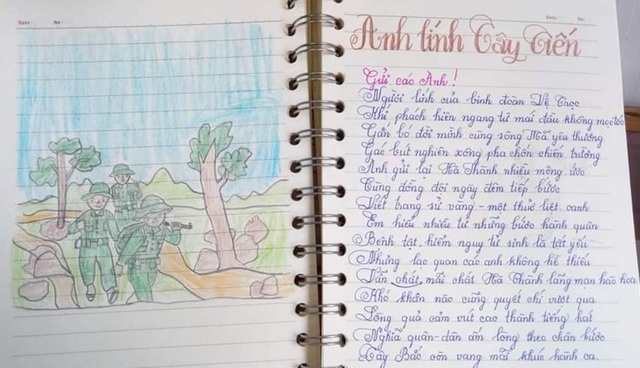 Date No
Date: No:
Anh lính Tây Tiến
Gửi các Anh!
Người lính của binh đoàn Vệ Trọc
Khí phách hiên ngang từ mái đầu không mọc tóc
Gắn bó đời mình cùng sông Mã yêu thương
Gác bút nghiên xông pha chốn chiến trường
Anh gửi lại Hà Thành nhiều mộng ước
Cùng đồng đội ngày đêm tiếp bước
Viết trang sử vàng - một thuở liệt oanh
Em hiểu nhiều từ những bước hành quân
Bệnh tật, hiểm nguy tử sinh là tất yếu
Nhưng lạc quan các anh không hề thiếu
Vẫn chất, mãi chất Hà Thành lãng mạn hào hoa
Khó khăn nào cũng quyết chí vượt qua
Lòng quả cảm vút cao thành tiếng hát
Nghĩa quân-dân ấm lòng theo chân bước
Tây Bắc còn vang mãi khúc hành ca.